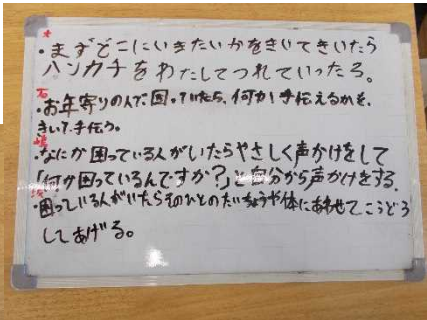 ・まずどこにいきたいかをきいてきいたら
ハンカチをわたしてつれていったろ。
石
・お年寄りの人で困っていたら、何か手伝えるかを、
きいて手伝う。
・なにか困っている人がいたらやさしく声かけをして
「何か困っているんですか?」と自分から声かけをする.
・困っている人がいたらそのひとのたいちょうや体にあわせてこうどう
してあげる。